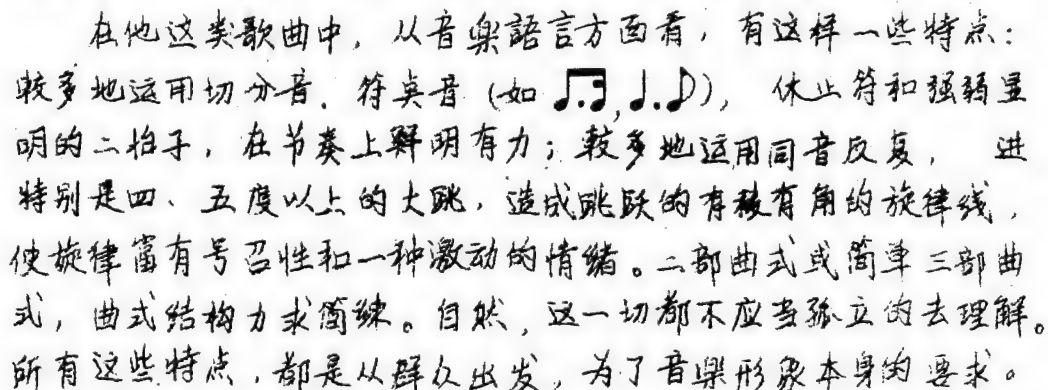 在他这类歌曲中，从音樂語言方面看，有这样一些特点：
较多地运用切分音、符点音（如 ♫. , ♩. ♪），休止符和强弱显
明的二拍子，在节奏上鲜明有力；较多地运用同音反复， 进
特别是四、五度以上的大跳，造成跳跃的有棱有角的旋律线，
使旋律富有号召性和一种激动的情绪。二部曲式或简单三部曲
式，曲式结构力求简练。自然，这一切都不应当孤立的去理解。
所有这些特点，都是从群众出发，为了音樂形象本身的要求。